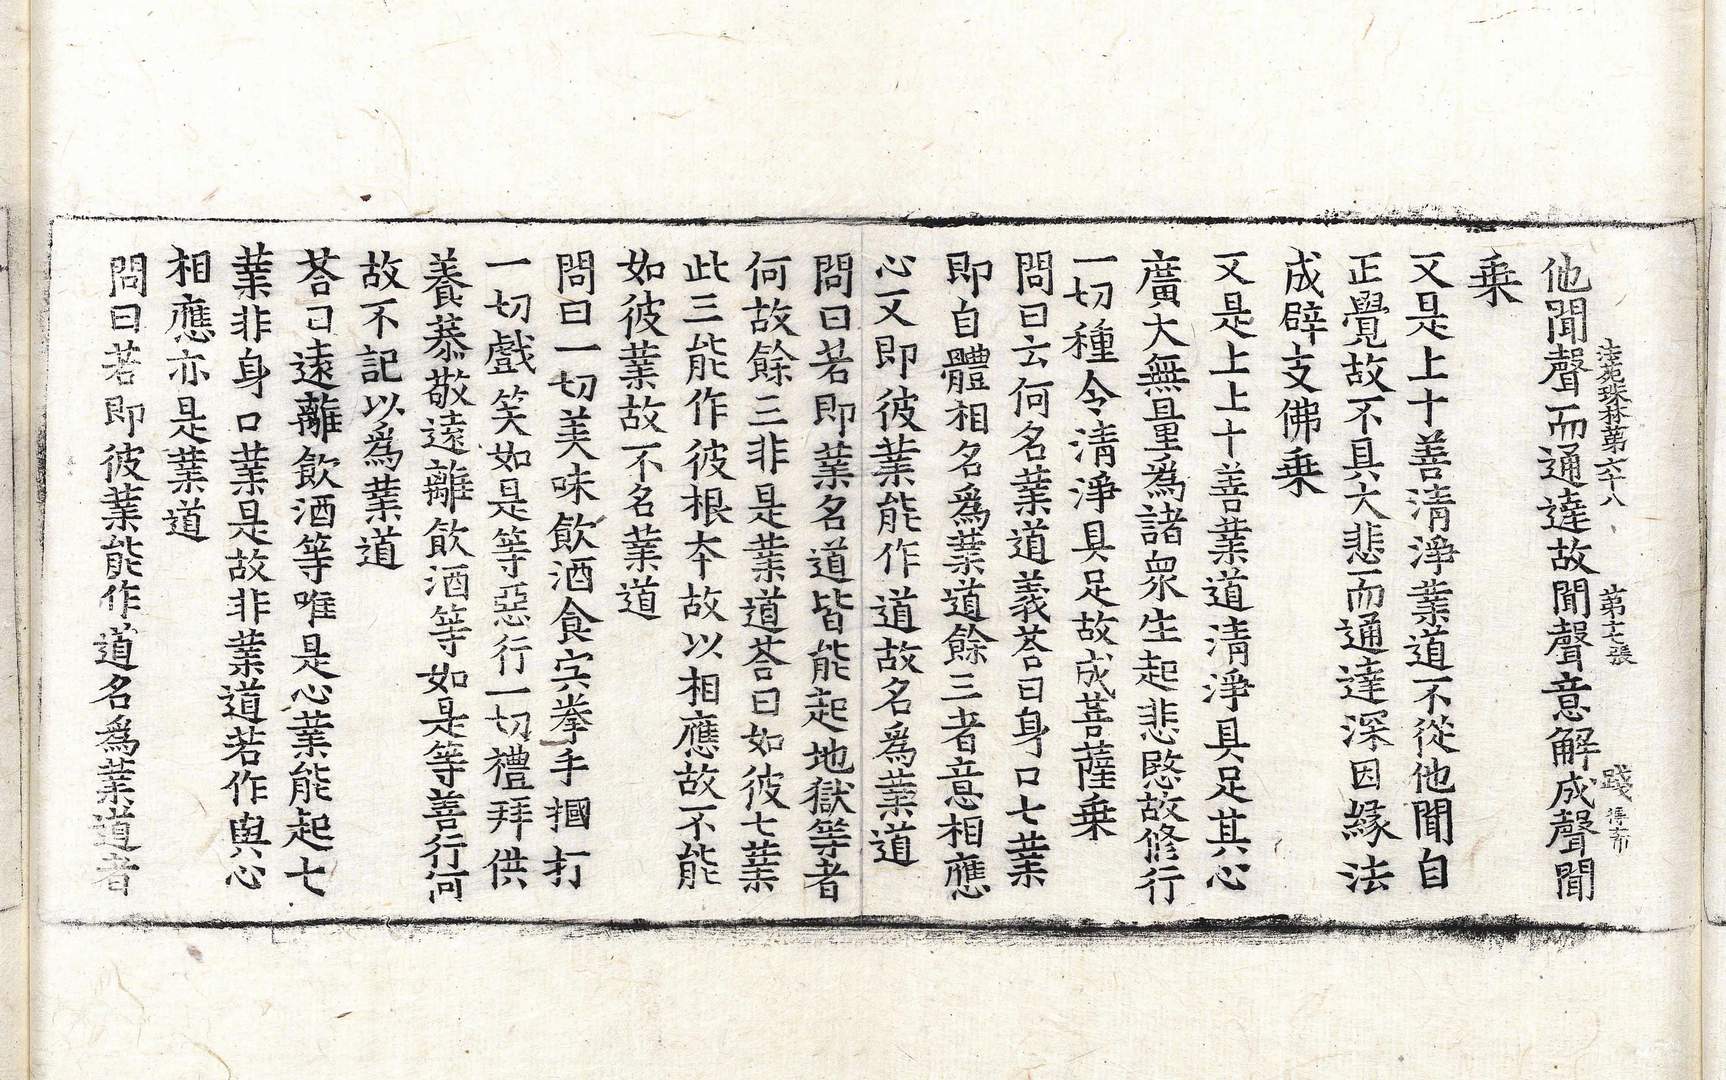 法苑珠林第六十八 第七張 踐 得布
他聞聲而通達故聞聲意解成聲聞
乗
又是上十善清淨業道不從他聞自
正覺故不具大悲而通達深因緣法
成辟支佛乗
又是上上十善業道清淨具足其心
廣大無量爲諸衆生起悲愍故修行
一切種令清淨具足故成菩薩乗
問曰云何名業道義荅曰身口七業
即自體相名爲業道餘三者意相應
心又即彼業能作道故名爲業道
問曰若即業名道皆能起地獄等者
何故餘三非是業道荅曰如彼七業
此三能作彼根夲故以相應故不能
如彼業故不名業道
問曰一切美味飲酒食宍拳手摑打
一切戲笑如是等惡行一切禮拜供
養恭敬遠離飲酒等如是等善行何
故不記以爲業道
荅曰遠離飲酒等唯是心業能起七
業非身口業是故非業道若作與心
相應亦是業道
問曰若即彼業能作道名爲業道者